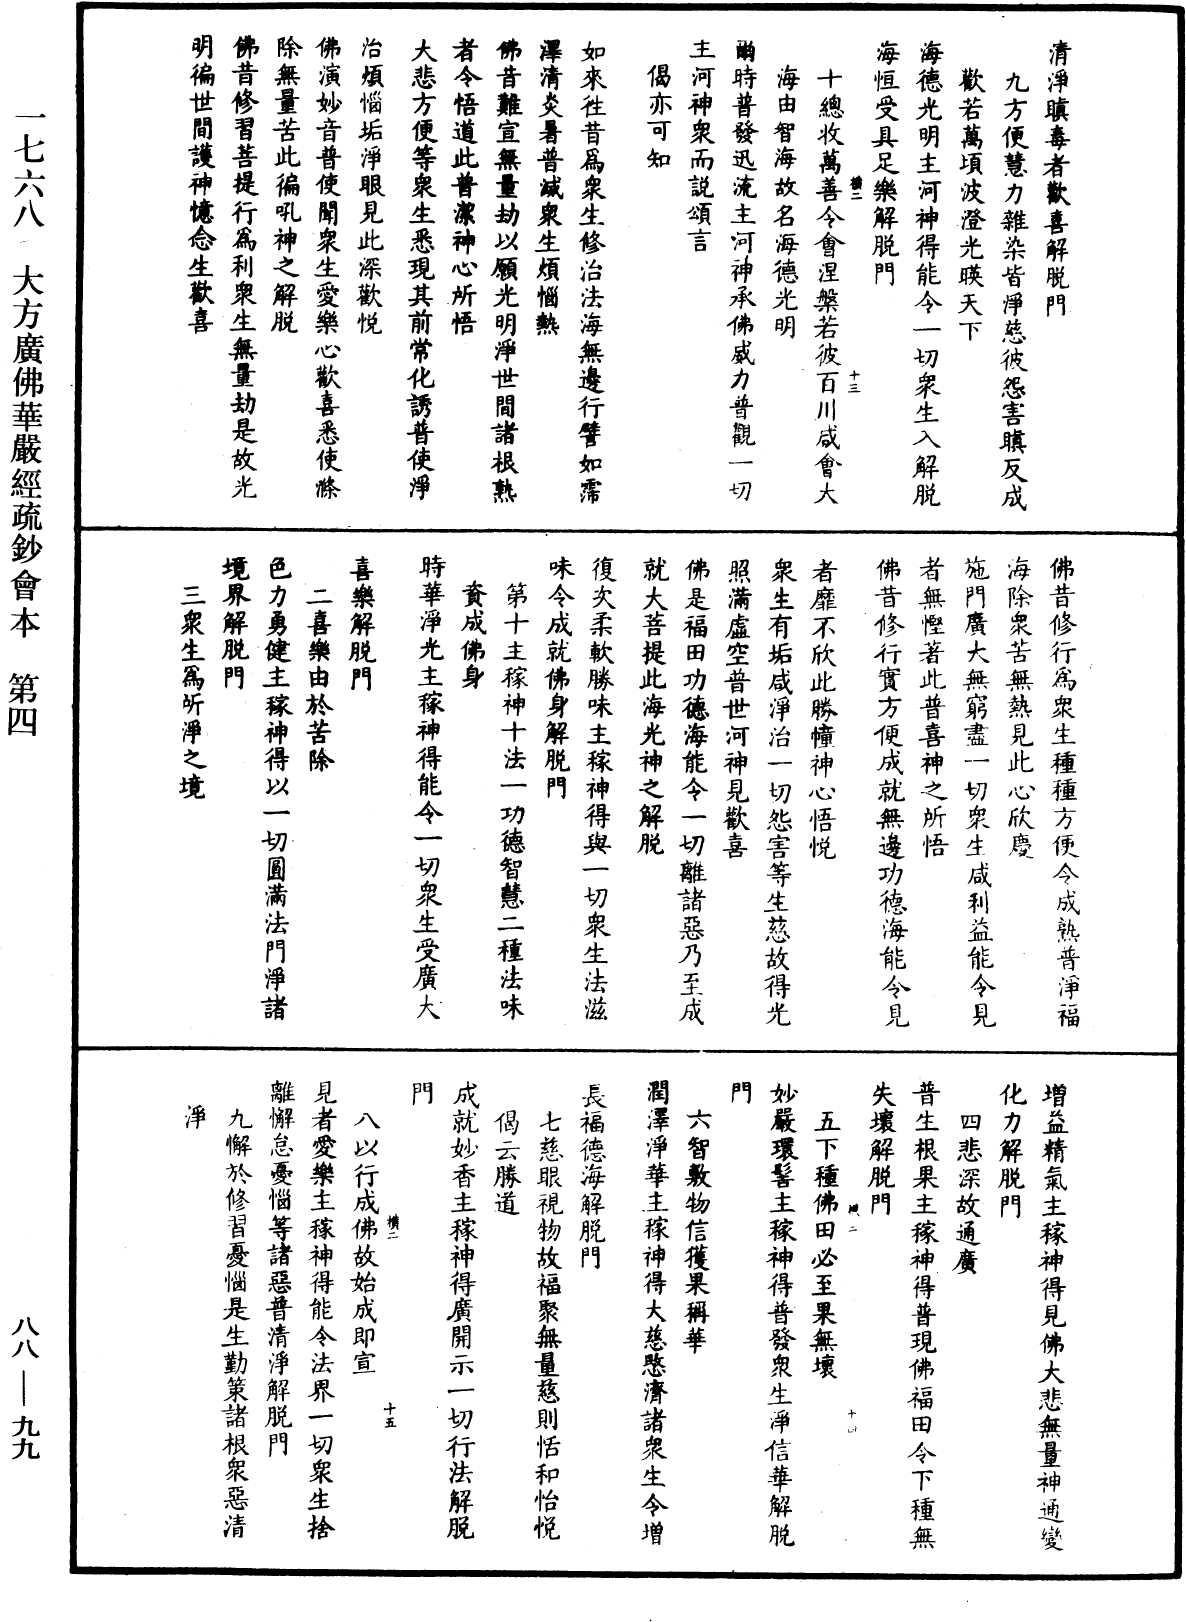 清淨瞋毒者歡喜解脱門
九方便慧力雜染皆淨慈彼怨害瞋反成
歡若萬頃波澄光暎天下
海德光明主河神得能令一切衆生入解脱
海恒受具足樂解脱門
十總收萬善令會涅槃若彼百川咸會大
橫二
十三
海由智海故名海德光明
爾時普發迅流主河神承佛威力普觀一切
主河神衆而説頌言
偈亦可知
如來往昔爲衆生修治法海無邊行譬如霈
澤清炎暑普滅衆生煩惱熱
佛昔難宣無量劫以願光明淨世間諸根熟
者令悟道此普潔神心所悟
大悲方便等衆生悉現其前常化誘普使淨
治煩惱垢淨眼見此深歡悦
佛演妙音普使聞衆生愛樂心歡喜悉使滌
除無量苦此徧吼神之解脱
佛昔修習菩提行爲利衆生無量劫是故光
明徧世間護神憶念生歡喜
佛昔修行爲衆生種種方便令成熟普淨福
海除衆苦無熱見此心欣慶
施門廣大無窮盡一切衆生咸利益能令見
者無慳著此普喜神之所悟
佛昔修行實方便成就無邊功德海能令見
者靡不欣此勝幢神心悟悦
衆生有垢咸淨治一切怨害等生慈故得光
照滿虛空普世河神見歡喜
佛是福田功德海能令一切離諸惡乃至成
就大菩提此海光神之解脱
復次柔軟勝味主稼神得與一切衆生法滋
味令成就佛身解脱門
第十主稼神十法一功德智慧二種法味
資成佛身
時華淨光主稼神得能令一切衆生受廣大
喜樂解脱門
二喜樂由於苦除
色力勇健主稼神得以一切圓滿法門淨諸
境界解脱門
三衆生爲所淨之境
增益精氣主稼神得見佛大悲無量神通變
化力解脱門
四悲深故通廣
普生根果主稼神得普現佛福田令下種無
失壞解脱門
五下種佛田必至果無壞
妙嚴環髻主稼神得普發衆生淨信華解脱
門
六智敷物信獲果稱華
潤澤淨華主稼神得大慈愍濟諸衆生令增
長福德海解脱門
七慈眼視物故福聚無量慈則恬和怡悦
偈云勝道
成就妙香主稼神得廣開示一切行法解脱
門
八以行成佛故始成即宣
橫二
十五
見者愛樂主稼神得能令法界一切衆生捨
離懈怠憂惱等諸惡普清淨解脱門
九懈於修習憂惱是生勤策諸根衆惡清
淨
一七六八 大方廣佛華嚴經疏鈔會本 第四
八八—九九